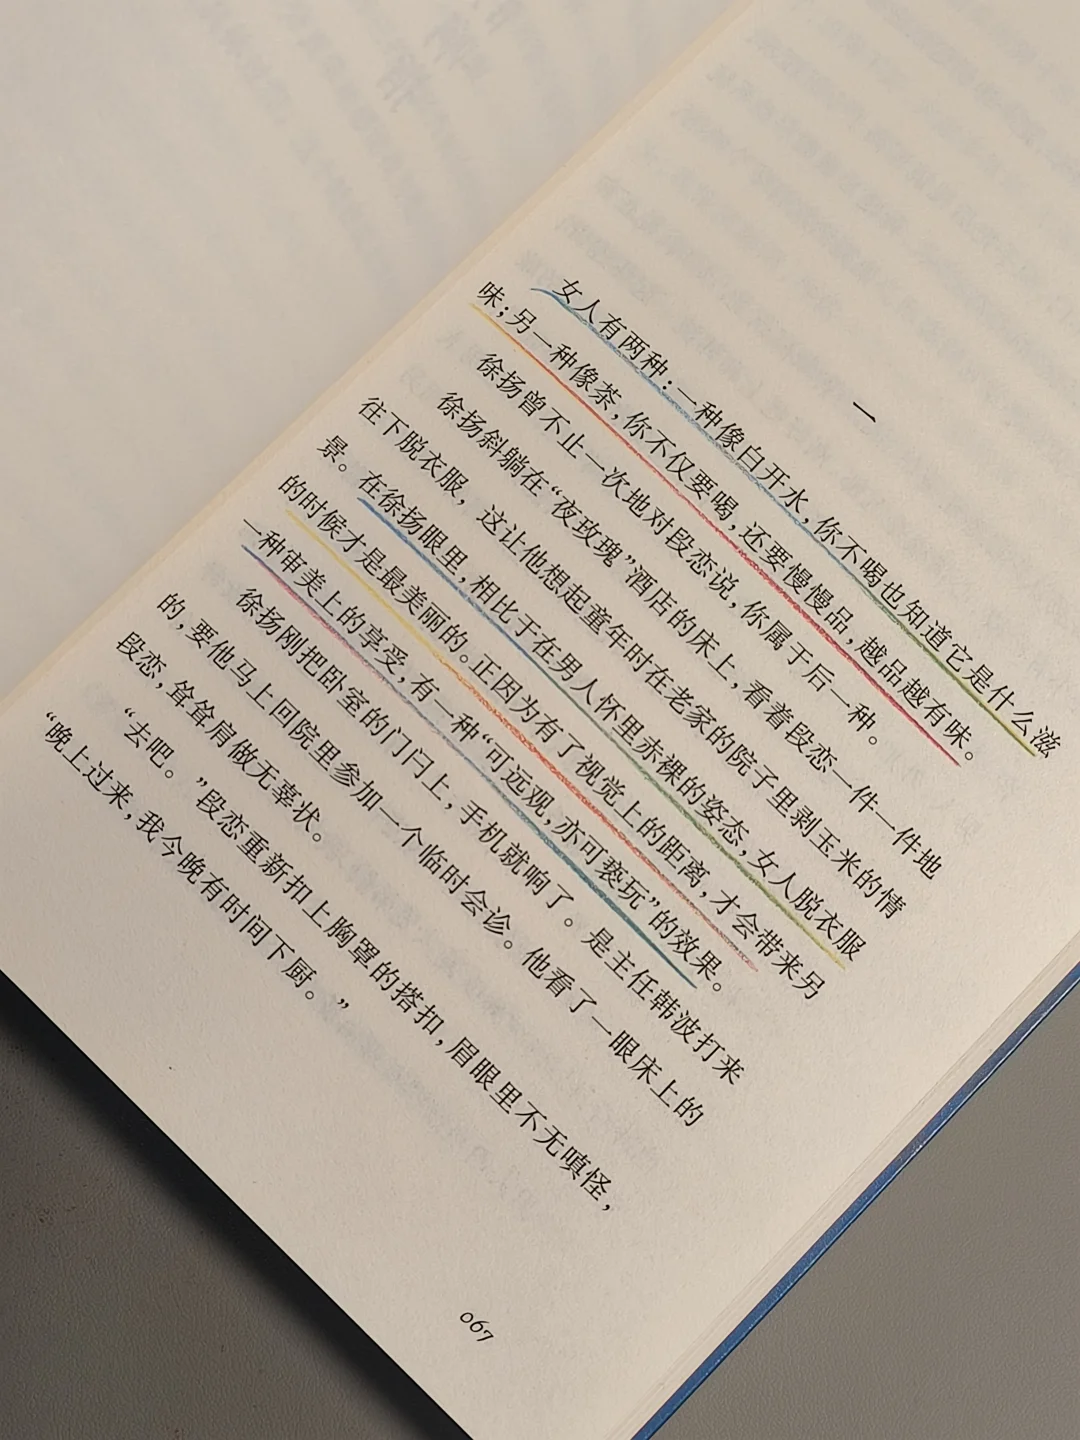 一
女人有两种：一种像白开水，你不喝也知道它是什么滋
味；另一种像茶，你不仅要喝，还要慢慢品，越品越有味。
徐扬曾不止一次地对段恋说，你属于后一种。
徐扬斜躺在“夜玫瑰”酒店的床上，看着段恋一件一件地
往下脱衣服，这让他想起童年时在老家的院子里剥玉米的情
景。在徐扬眼里，相比于在男人怀里赤裸的姿态，女人脱衣服
的时候才是最美丽的。正因为有了视觉上的距离，才会带来另
一种审美上的享受，有一种“可远观，亦可亵玩”的效果。
徐扬刚把卧室的门闩上，手机就响了。是主任韩波打来
的，要他马上回院里参加一个临时会诊。他看了一眼床上的
段恋，耸耸肩做无辜状。
“去吧。”段恋重新扣上胸罩的搭扣，眉眼里不无嗔怪，
“晚上过来，我今晚有时间下厨。”
067